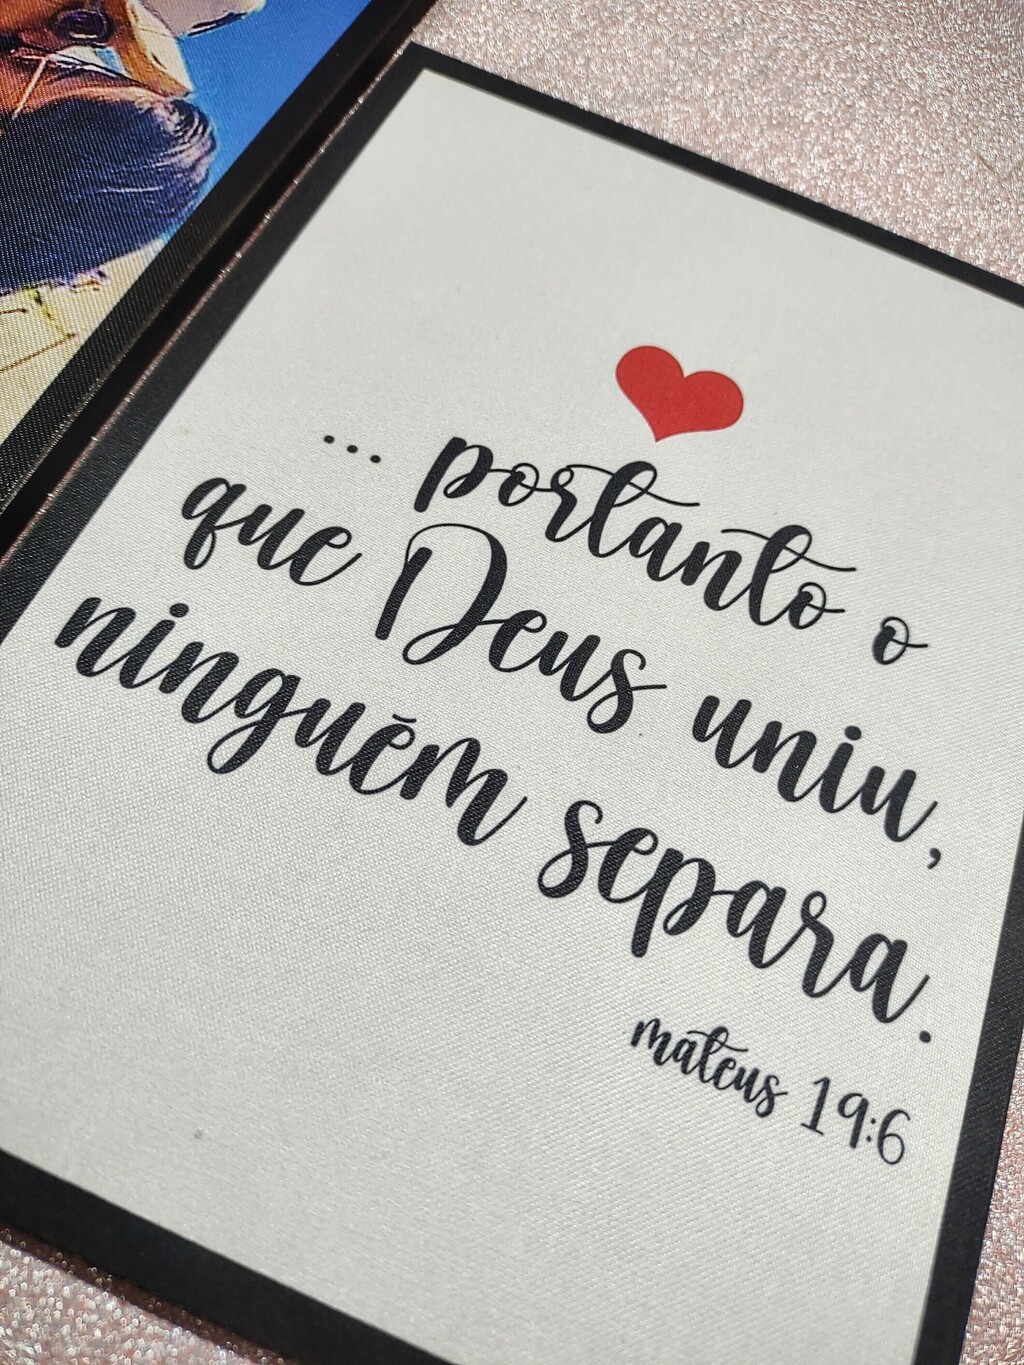 ... portanto o
que Deus uniu,
ninguém separa.
mateus 19:6